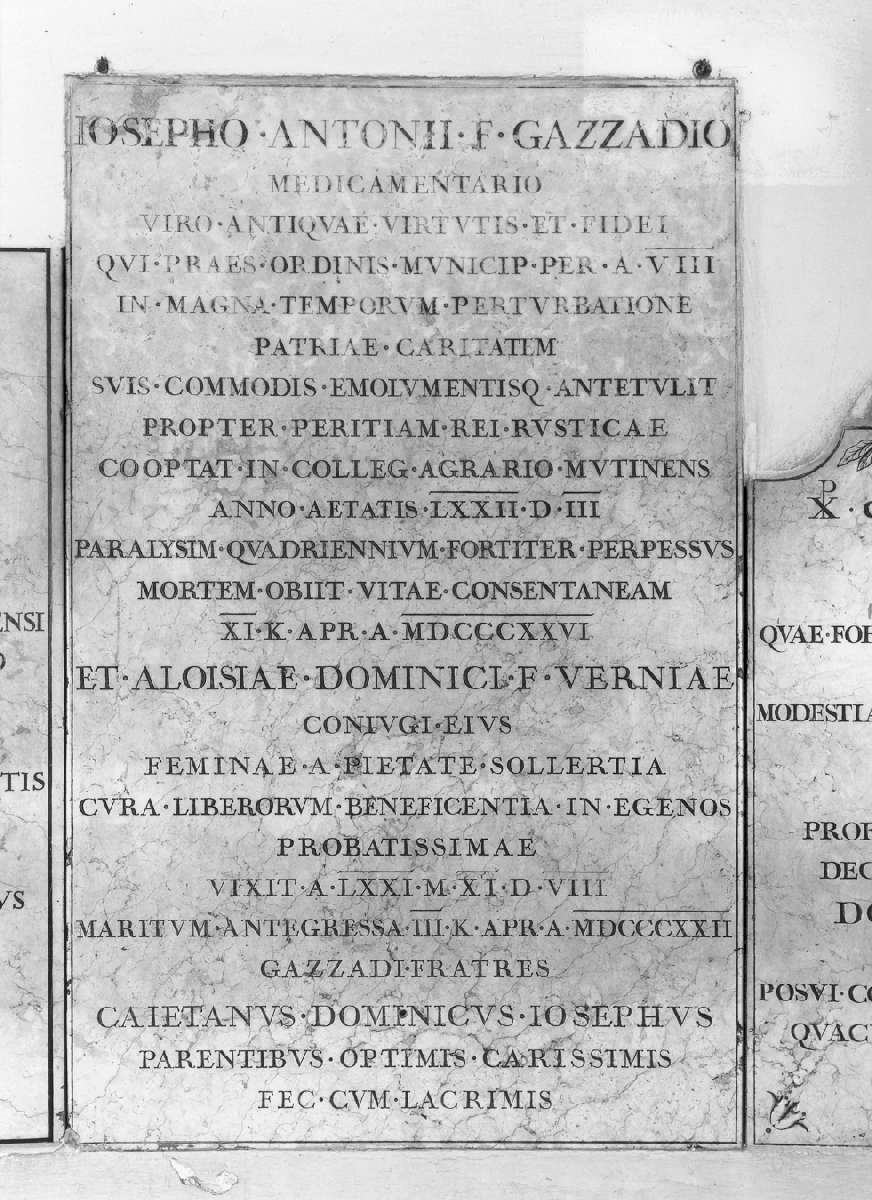 IOSEPHO · ANTONII · F · GAZZADIO
MEDICAMENTARIO
VIRO · ANTIQVAE · VIRTVTIS · ET · FIDEI
QVI · PRAES · ORDINIS · MVNICIP · PER · A · VIII
IN · MAGNA · TEMPORVM · PERTVRBATIONE
PATRIAE · CARITATEM
SVIS · COMMODIS · EMOLVMENTISQ · ANTETVLIT
PROPTER · PERITIAM · REI · RVSTICAE
COOPTAT · IN · COLLEG · AGRARIO · MVTINENS
ANNO · AETATIS · LXXII · D · III
PARALYSIM · QVADRIENNIVM · FORTITER · PERPESSVS
MORTEM · OBIIT · VITAE · CONSENTANEAM
XI · K · APR · A · MDCCCXXVI
ET · ALOISIAE · DOMINICI · F · VERNIAE
CONIVGI · EIVS
FEMINAE · A · PIETATE · SOLLERTIA
CVRA · LIBERORVM · BENEFICENTIA · IN · EGENOS
PROBATISSIMAE
VIXIT · A · LXXI · M · XI · D · VIII
MARITVM · ANTEGRESSA · III · K · APR · A · MDCCCXXII
GAZZADI · FRATRES
CAIETANVS · DOMINICVS · IOSEPHVS
PARENTIBVS · OPTIMIS · CARISSIMIS
FEC · CVM · LACRIMIS
ENSI
TIS
VS
QVAE · FOR
MODESTIA
PROF
DEC
DO
POSVI · CO
QVAC